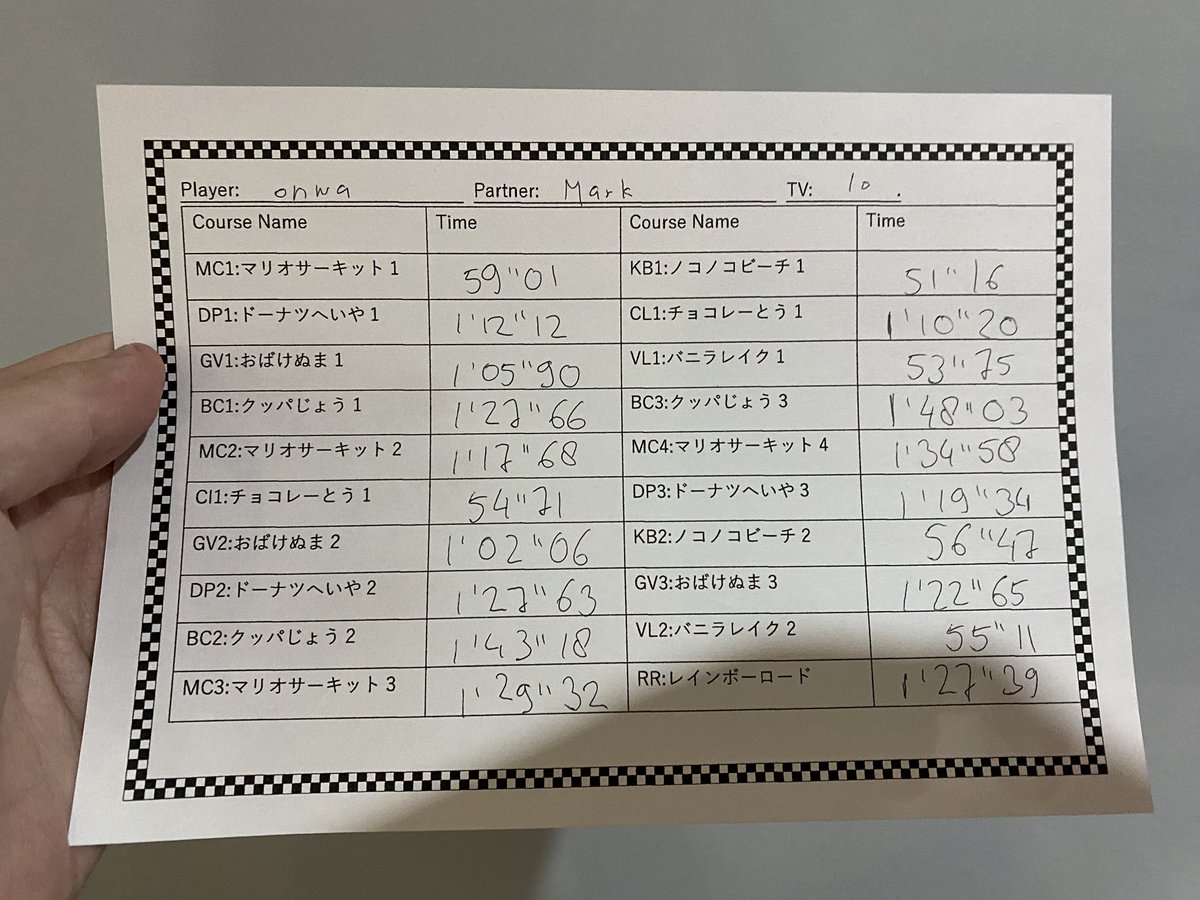 Player: onwa Partner: Mark TV: 10.
Course Name Time Course Name Time
MC1:マリオサーキット1 59"01 KB1:ノコノコビーチ1 51"16
DP1:ドーナツへいや1 1'12"12 CL1:チョコレーとう1 1'10"20
GV1:おばけぬま1 1'05"90 VL1:バニラレイク1 53"75
BC1:クッパじょう1 1'27"66 BC3:クッパじょう3 1'48"03
MC2:マリオサーキット2 1'17"68 MC4:マリオサーキット4 1'34"58
CI1:チョコレーとう1 54"71 DP3:ドーナツへいや3 1'19"34
GV2:おばけぬま2 1'02"06 KB2:ノコノコビーチ2 56"47
DP2:ドーナツへいや2 1'27"63 GV3:おばけぬま3 1'22"65
BC2:クッパじょう2 1'43"18 VL2:バニラレイク2 55"11
MC3:マリオサーキット3 1'29"32 RR:レインボーロード 1'27"39